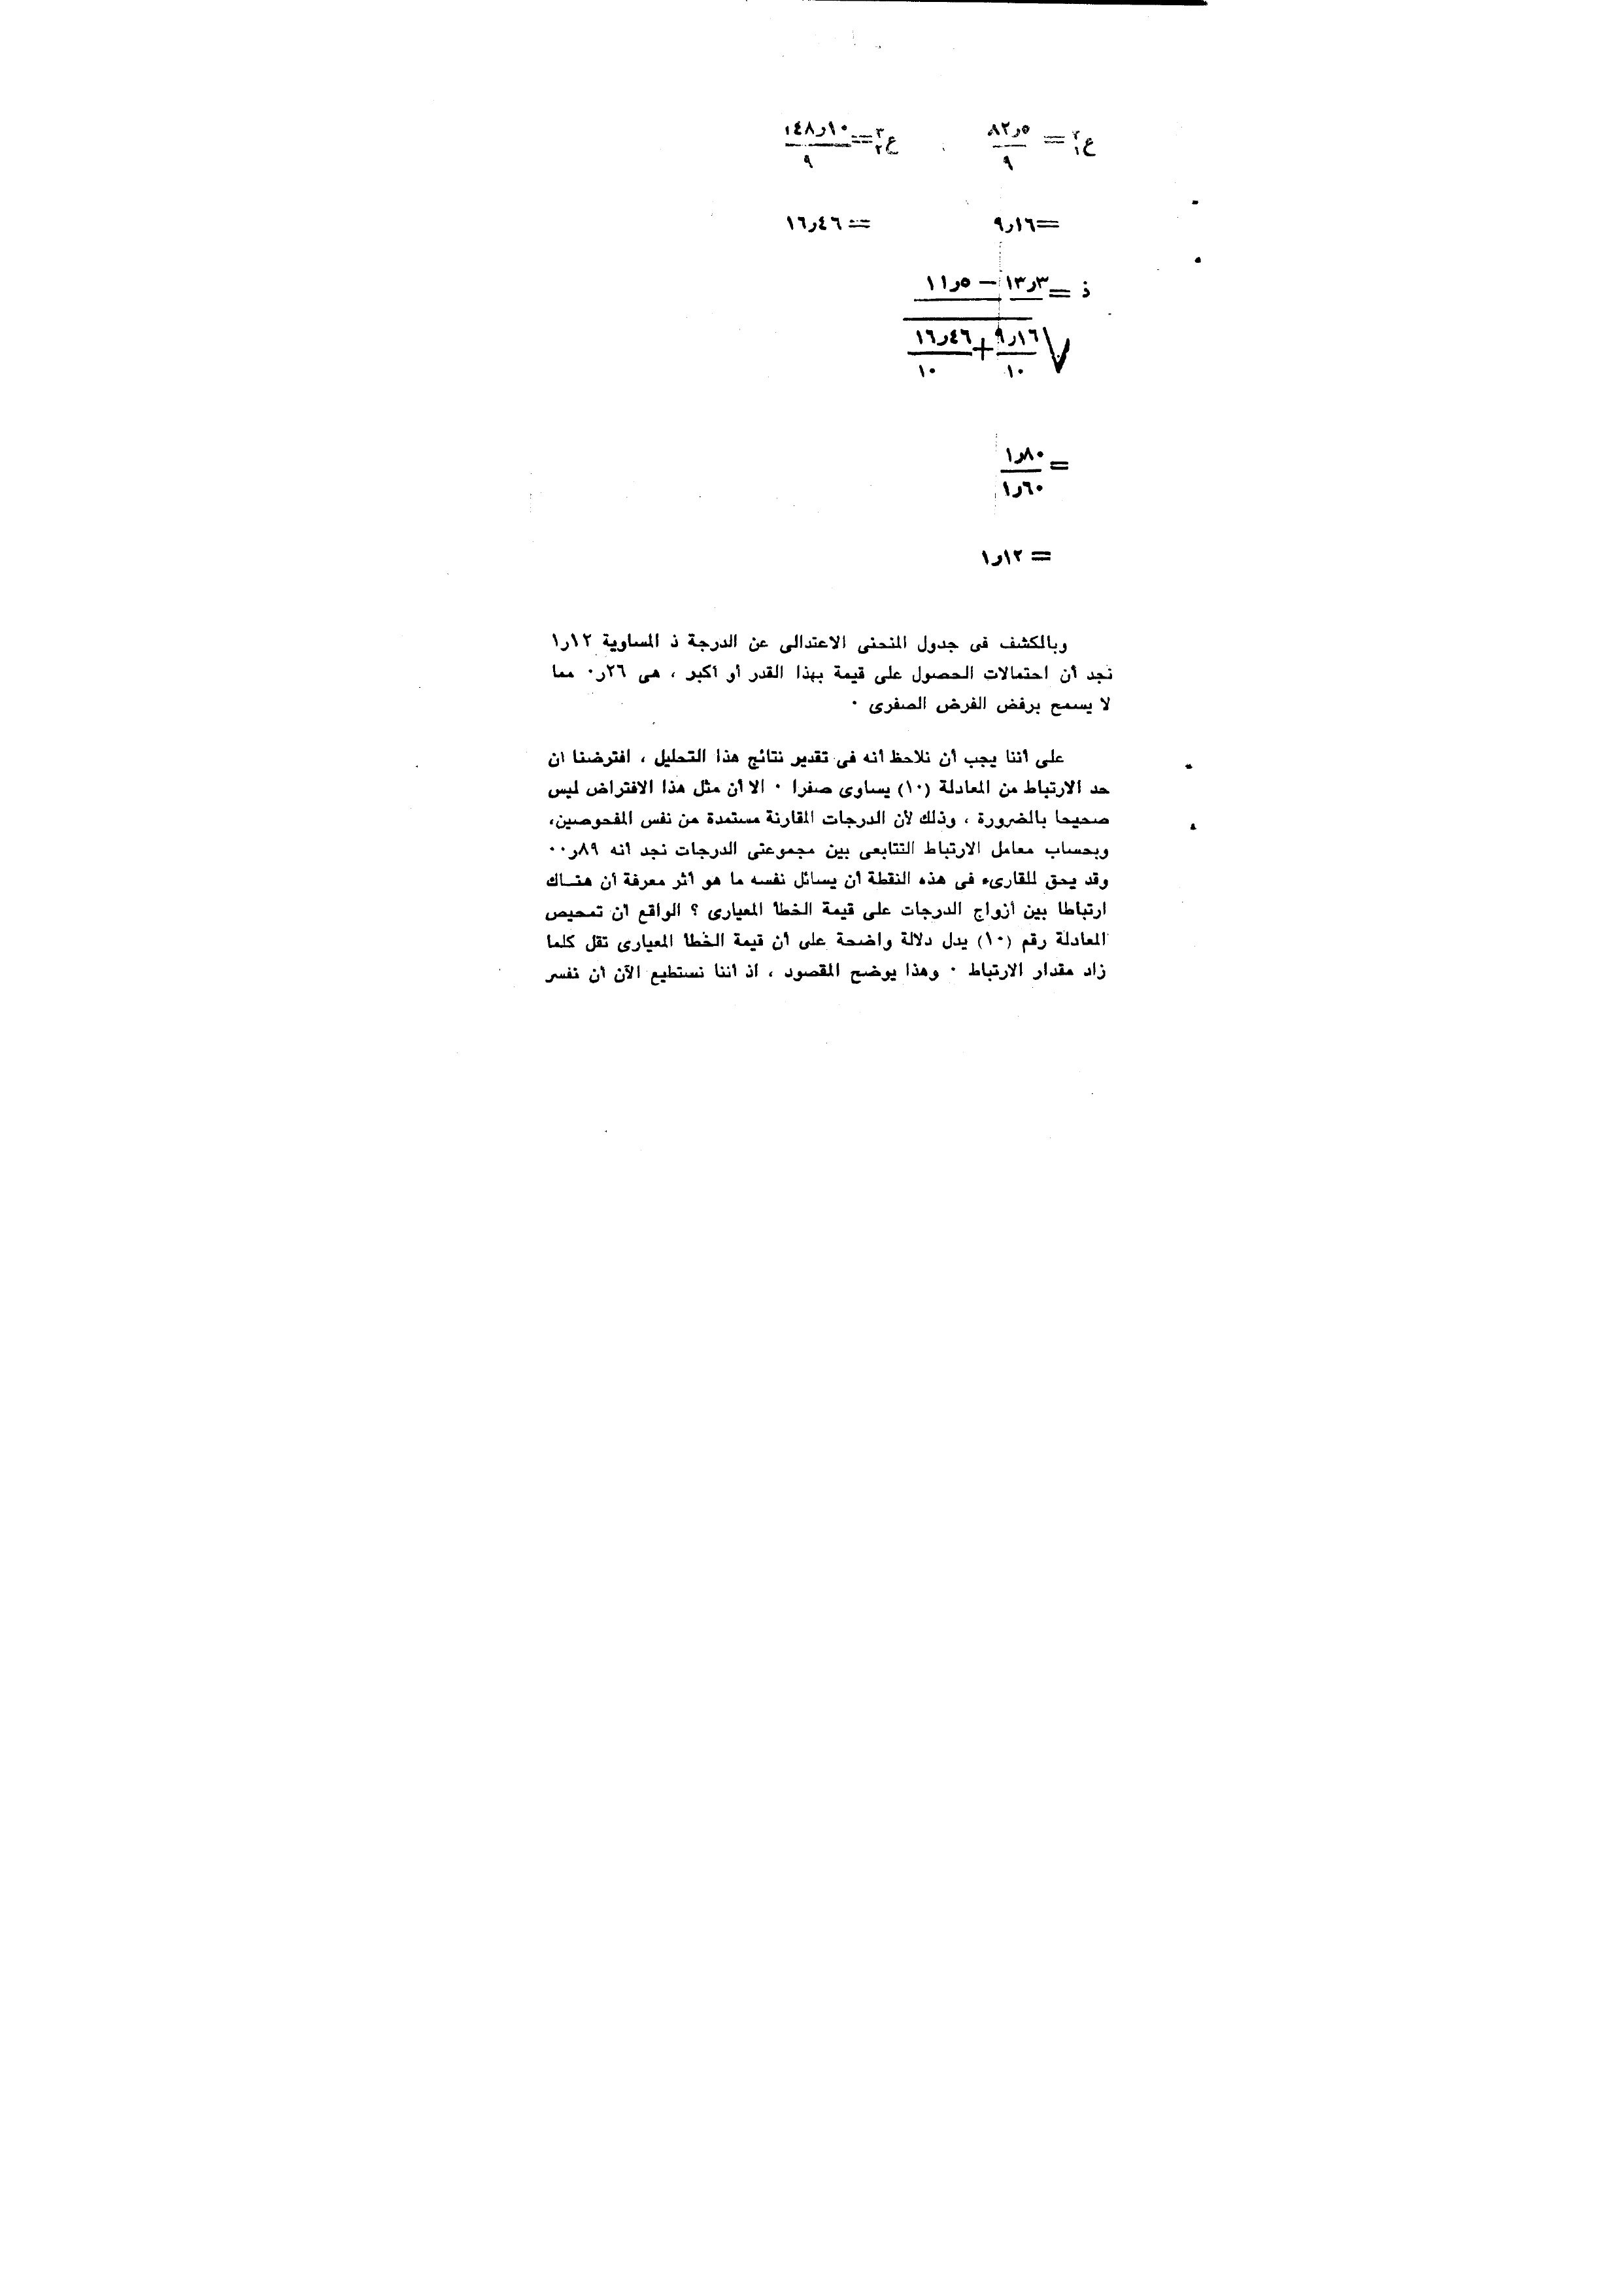 ع١٢ = ٨٢ر٥ / ٩    ع٢٢ = ١٤٨ر١٠ / ٩
= ٩ر١٦    = ١٦ر٤٦
ذ = ١٣ر٣ — ١١ر٥
√ ٩ر١٦ / ١٠ + ١٦ر٤٦ / ١٠
= ١ر٨٠ / ١ر٦٠
= ١ر١٢
وبالكشف فى جدول المنحنى الاعتدالى عن الدرجة ذ المساوية ١ر١٢
نجد أن احتمالات الحصول على قيمة بهذا القدر أو أكبر ، هى ٠ر٢٦ مما
لا يسمح برفض الفرض الصفرى ٠
على أننا يجب أن نلاحظ أنه فى تقدير نتائج هذا التحليل ، افترضنا ان
حد الارتباط من المعادلة (١٠) يساوى صفرا ٠ الا أن مثل هذا الافتراض ليس
صحيحا بالضرورة ، وذلك لأن الدرجات المقارنة مستمدة من نفس المفحوصين،
وبحساب معامل الارتباط التتابعى بين مجموعتى الدرجات نجد أنه ٠ر٨٩٠
وقد يحق للقارىء فى هذه النقطة أن يسائل نفسه ما هو أثر معرفة أن هنـاك
ارتباطا بين أزواج الدرجات على قيمة الخطأ المعيارى ؟ الواقع أن تمحيص
المعادلة رقم (١٠) يدل دلالة واضحة على أن قيمة الخطأ المعيارى تقل كلما
زاد مقدار الارتباط ٠ وهذا يوضح المقصود ، اذ أننا نستطيع الآن أن نفسر